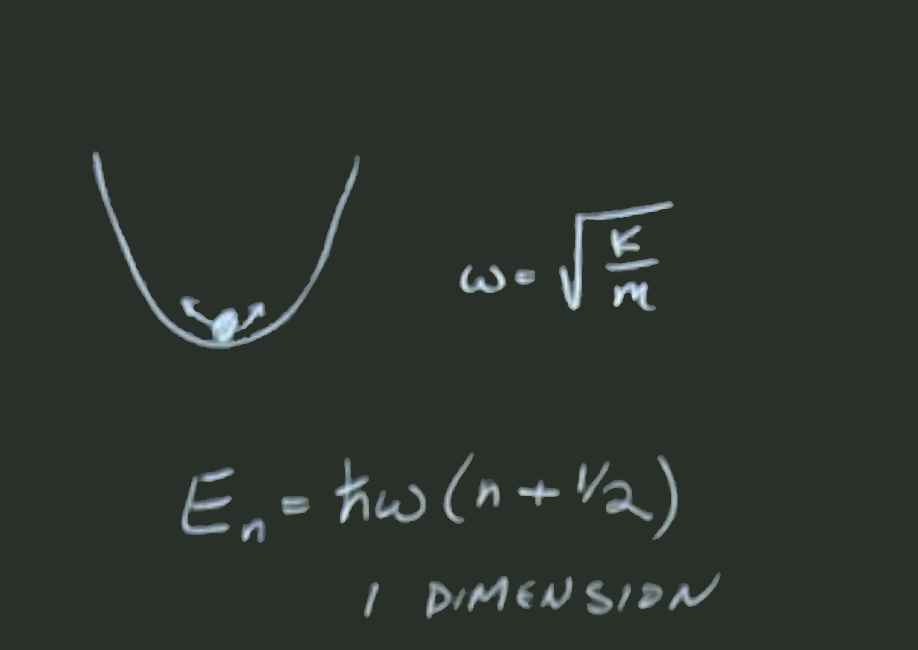 ω = √(K/m)
Eₙ = ħω(n + 1/2)
1 DIMENSION